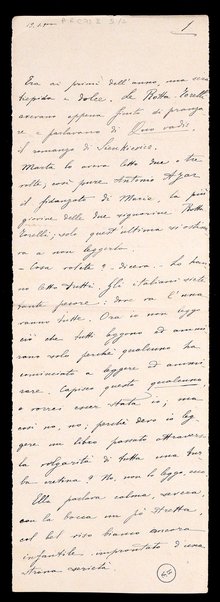 1
Era ai primi dell'anno, una sera
tiepida e dolce. Le Rotta Torelli
avevano appena finito di pranza
re e parlavano di Quo vadis,
il romanzo di Sienkievicz.
Marta lo aveva letto due o tre
volte, così pure Antonio Azar
il fidanzato di Maria, la più
giovine delle due signorine Rotta
Torelli; solo quest'ultima si ostina
va a non leggerlo.
– Cosa volete? – diceva. – Lo han
no letto tutti. Gli italiani siete
tante pecore: dove va l'una
vanno tutte. Ora io non
ciò che tutti leggono ed ammi
rano solo perché qualcuno ha
cominciato a leggere ed ammi
rare. Capisco questo qualcuno
e vorrei esser stata io; ma
così no, no; perché devo io leg
gere un libro passato attraverso
la volgarità di tutta una
? No, non lo leggo, ecco
Ella parlava calma, severa,
con la bocca un po' stretta,
col bel viso bianco ancora
infantile improntato d'una
strana serietà.